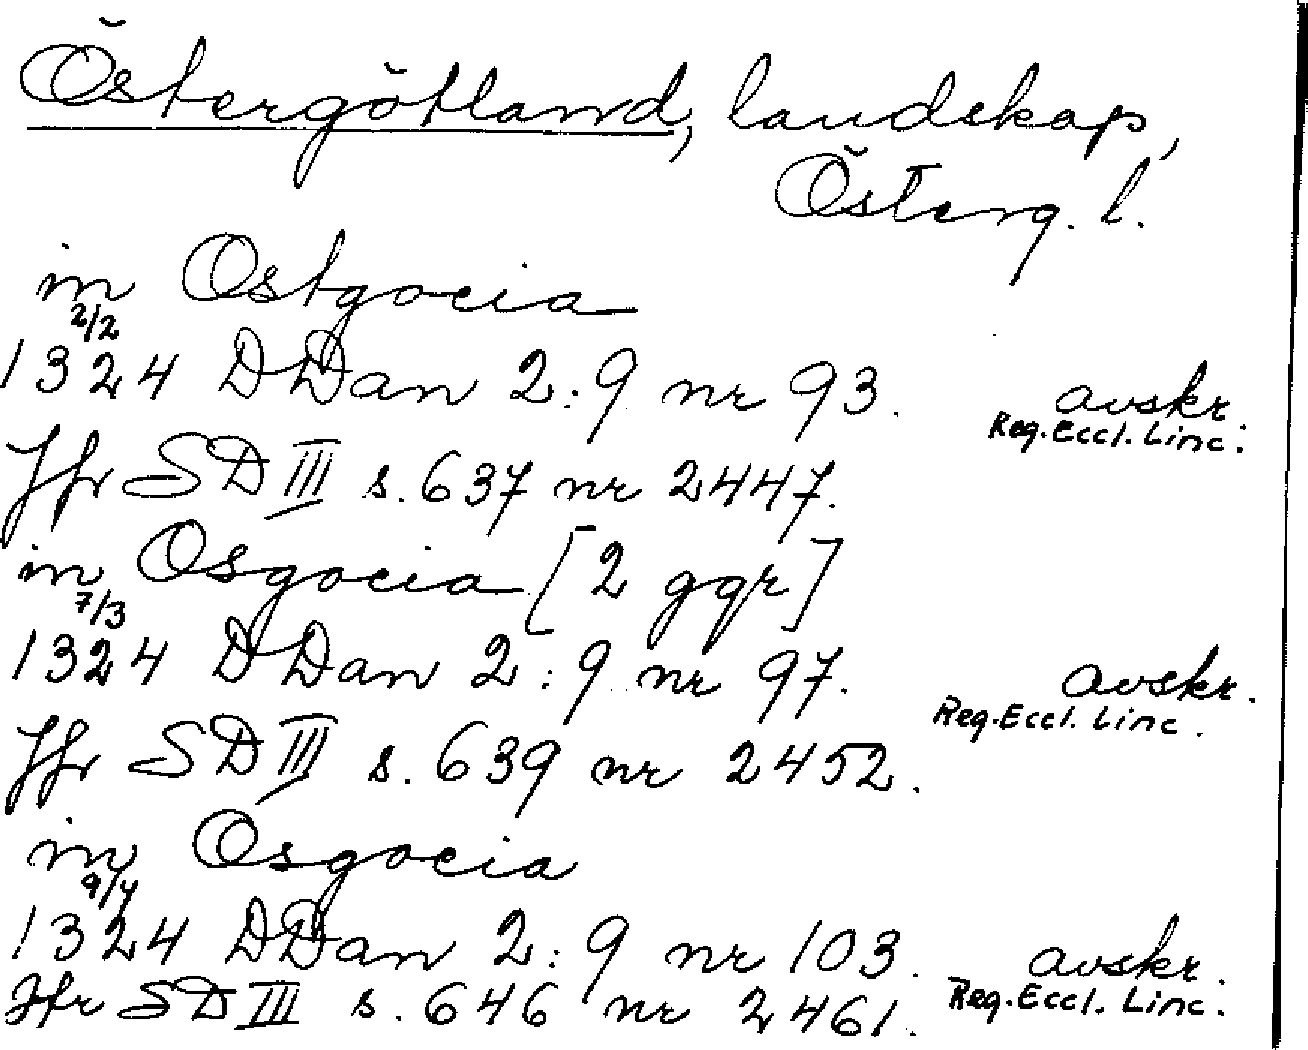 Östergötland, landskap,
Österg. l.
in Ostgocia
2/2
1324 DDan 2:9 nr 93. avskr.
Reg. Eccl. Linc.
Jfr SD III s. 637 nr 2447.
in Osgocia [2 ggr]
7/3
1324 DDan 2:9 nr 97. avskr.
Reg. Eccl. Linc.
Jfr SD III s. 639 nr 2452.
in Osgocia
9/4
1324 DDan 2:9 nr 103. avskr.
Jfr SD III s. 646 nr 2461. Reg. Eccl. Linc.